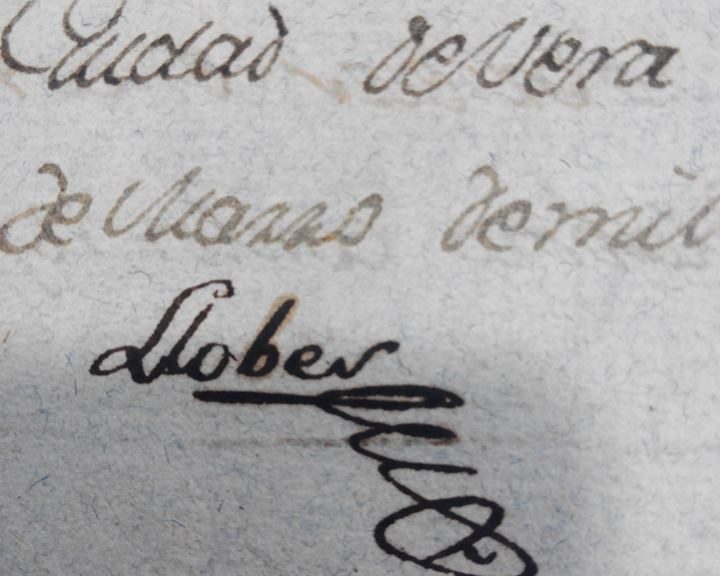 Ciudad de Vera
de Marzo de mil
Llober